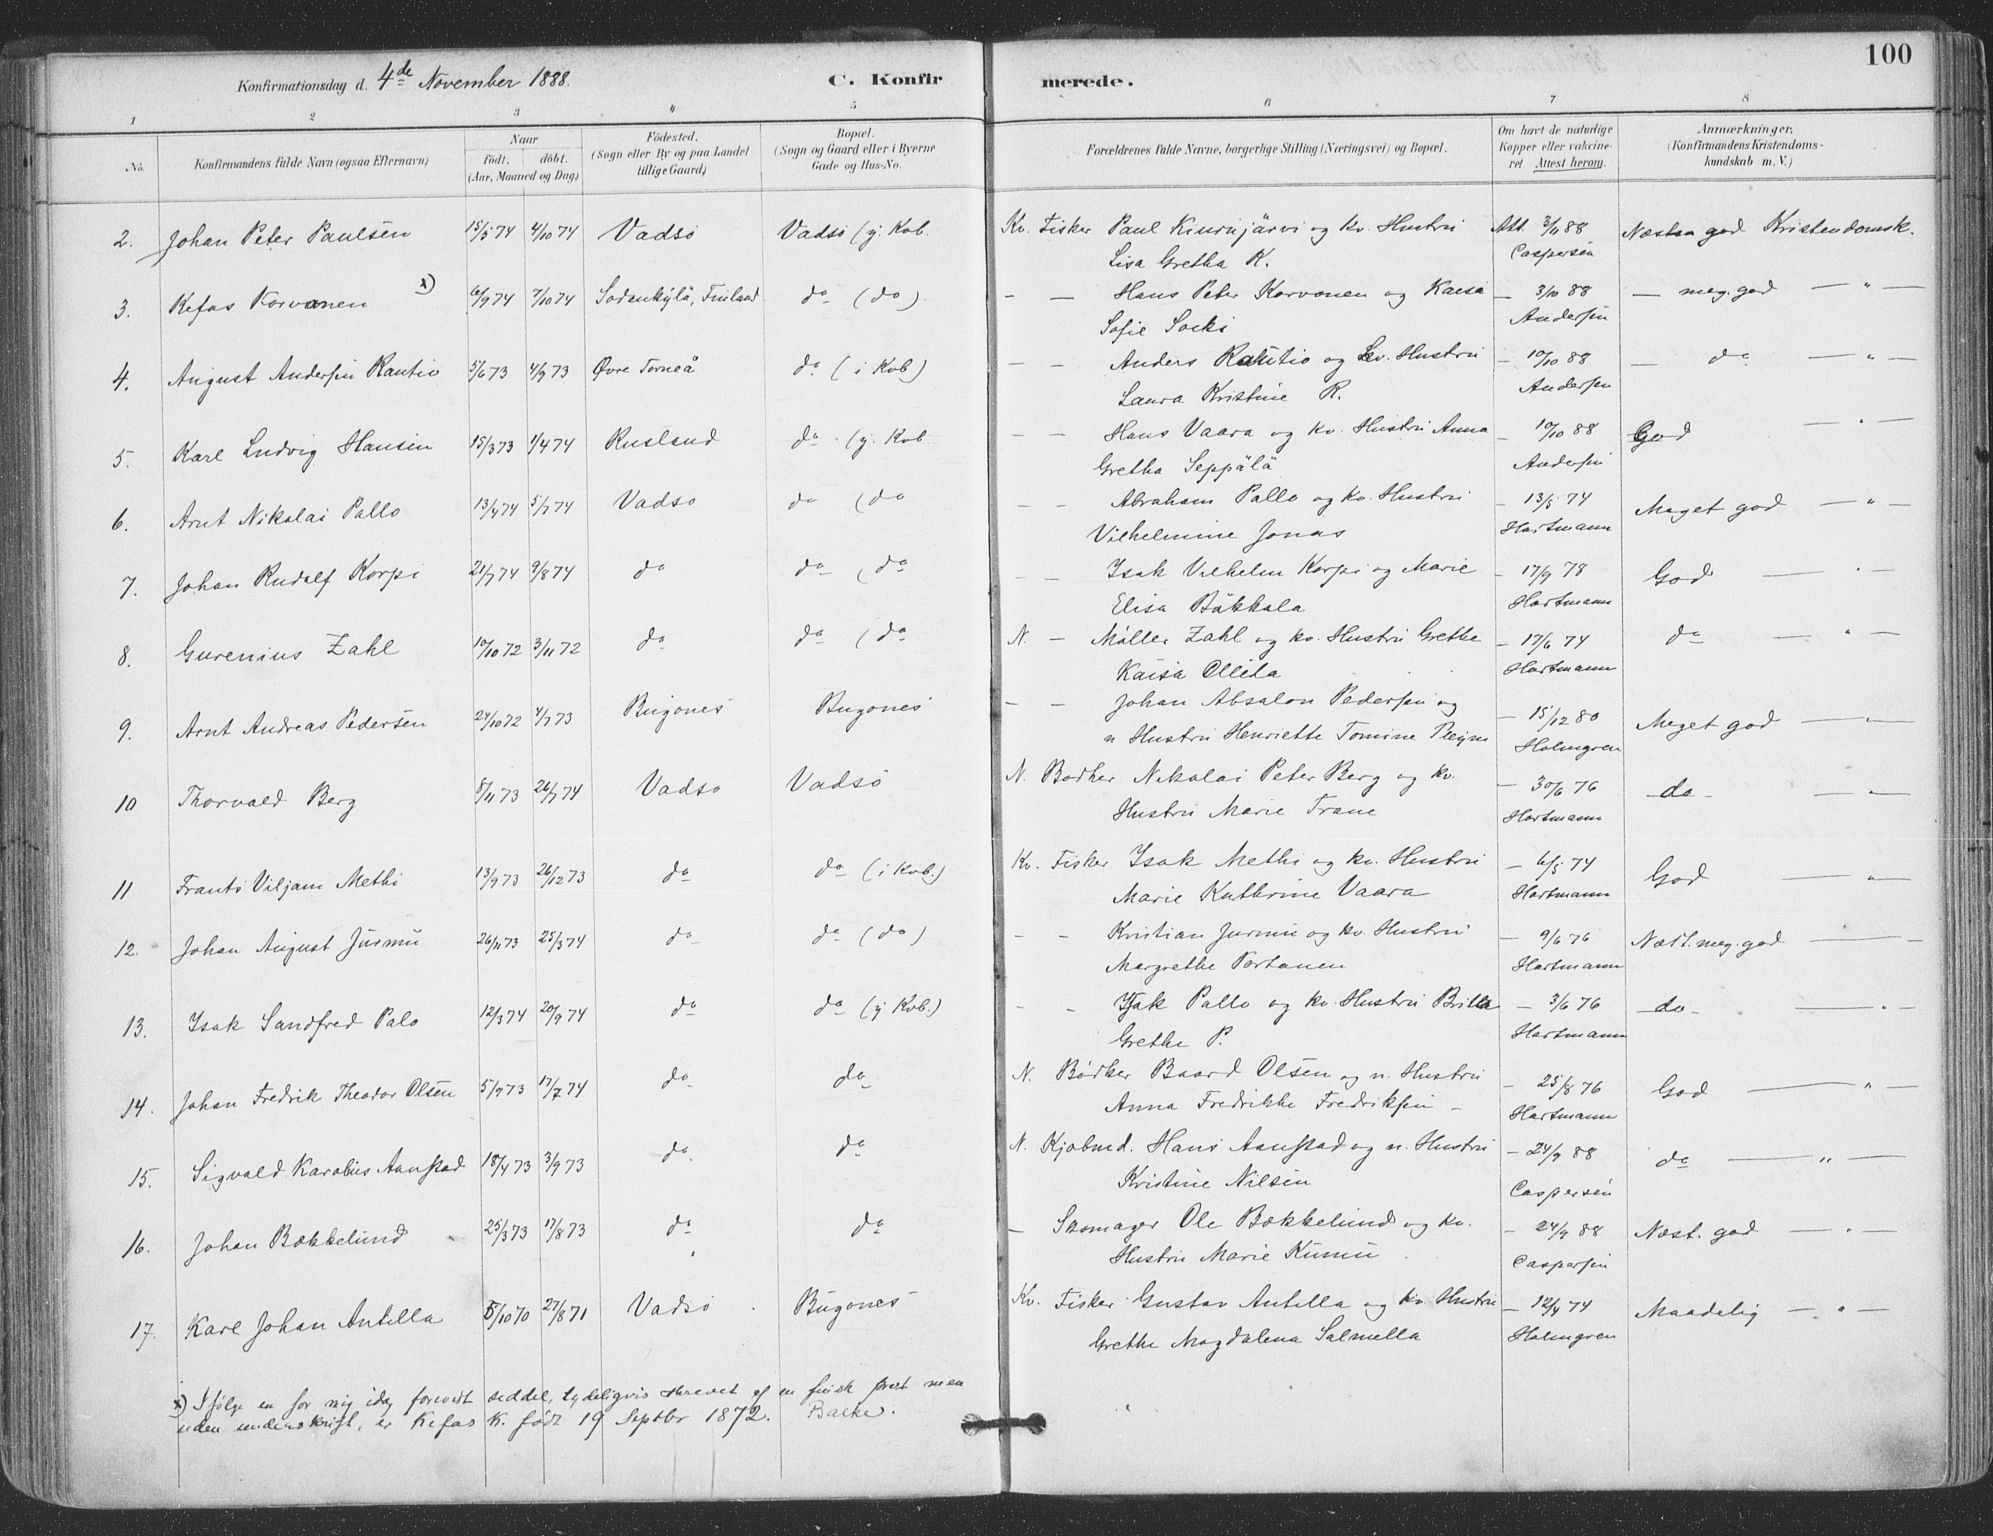 100
Konfirmationsdag d. 4de November 1888.
C. Konfirmerede.
1 2 3 4 5 6 7 8
No.
Konfirmandens fulde Navn (ogsaa Efternavn)
Naar
födt. döbt.
(Aar, Maaned og Dag)
Födested.
(Sogn eller By og paa Landet
tillige Gaard)
Bopæl.
(Sogn og Gaard eller i Byerne
Gade og Hus-No.
Forældrenes fulde Navne, borgerlige Stilling (Næringsvei) og Bopæl.
Om havt de naturlige
Kopper eller vakcine-
ret Attest herom.
Anmærkninger.
(Konfirmandens Kristendoms-
kundskab m. V.)
2. Johan Peter Paulsen 15/5 74 4/10 74 Vadsø Vadsø (y. Kvb. Kv. Fisker Paul Kinnujärvi og kv. Hustru Att. 3/11 88 Næsten god Kristendomsk.
Lisa Gretha K. Caspersen
3. Kefas Korvanen x) 6/9 74 7/10 74 Sodankylä, Finland do (do) — — Hans Peter Korvanen og Kaisa — 3/10 88 — meg. god — " —
Sofie Socki Andersen
4. August Andersen Rautio 5/6 73 4/9 73 Øvre Torneå do (i Kvb) — — Anders Rautio og kv. Hustru — 10/10 88 — do — " —
Laura Kristine R. Andersen
5. Karl Ludvig Hansen 15/3 73 1/4 74 Rusland do (y. Kvb. — — Hans Vaara og kv. Hustru Anna — 10/10 88 God " —
Gretha Seppälä Andersen
6. Arnt Nikolai Pallo 13/4 74 5/7 74 Vadsø do (do — — Abraham Pallo og kv. Hustru — 13/5 74 Meget god — " —
Vilhelmine Jonas Hartmann
7. Johan Rudolf Korpi 21/7 74 9/8 74 do do (do — — Isak Vilhelm Korpi og Marie — 17/9 78 God — " —
Elisa Bäkkala Hartmann
8. Gurenius Zahl 10/10 72 3/11 72 do do (do N. — Møller Zahl og kv. Hustru Grethe — 17/6 74 do — " —
Kaisa Ollila Hartmann
9. Arnt Andreas Pedersen 24/10 72 4/7 73 Bugønes Bugønes — — Johan Absalon Pedersen og — 15/12 80 Meget god — " —
n Hustru Henriette Tomine Holmgren
10 Thorvald Berg 8/11 73 26/7 74 Vadsø Vadsø N. Bødker Nikolai Peter Berg og kv. — 30/6 76 do — " —
Hustru Marie Trane Hartmann
11 Frants Viljam Methi 13/9 73 26/12 73 do do (i Kvb.) Kv. Fisker Isak Methi og kv. Hustru — 6/5 74 God — " —
Marie Kathrine Vaara Hartmann
12. Johan August Jurmu 26/11 73 25/3 74 do do (do) — — Kristian Jurmu og kv. Hustru — 9/6 76 Næst. meg. god — " —
Margrethe Portanen Hartmann
13. Isak Sandfred Palo 12/3 74 20/9 74 do do (y Kvb.) — — Isak Pallo og kv. Hustru Britta — 3/6 76 do — " —
Grethe P. Hartmann
14. Johan Fredrik Theodor Olsen 5/7 73 17/7 74 do do N. Bödker Baard Olsen og n. Hustru — 25/8 76 God — " —
Anna Fredrikke Fredriksen — Hartmann
15. Sigvald Karolius Aanstad 18/4 73 3/9 73 do. do N. Kjøbmd. Hans Aanstad og n. Hustru — 24/9 88 do — " —
Kristine Nilsen Caspersen
16. Johan Bækkelund 25/3 73 17/8 73 do do — Skomager Ole Bækkelund og kv. — 24/9 88 Næst. god — " —
Hustru Marie Kumu Caspersen
17. Karl Johan Antilla 5/10 70 27/8 71 Vadsø Bugønes Kv. Fisker Gustav Antilla og kv. Hustru — 12/4 74 Maadelig — " —
Grethe Magdalena Salmella Holmgren
x) Ifølge en for mig idag forevist seddel, tydeligvis skrevet af en finsk prest men
uden underskrift, er Kefas K. født 19 Septbr 1872. Balke.